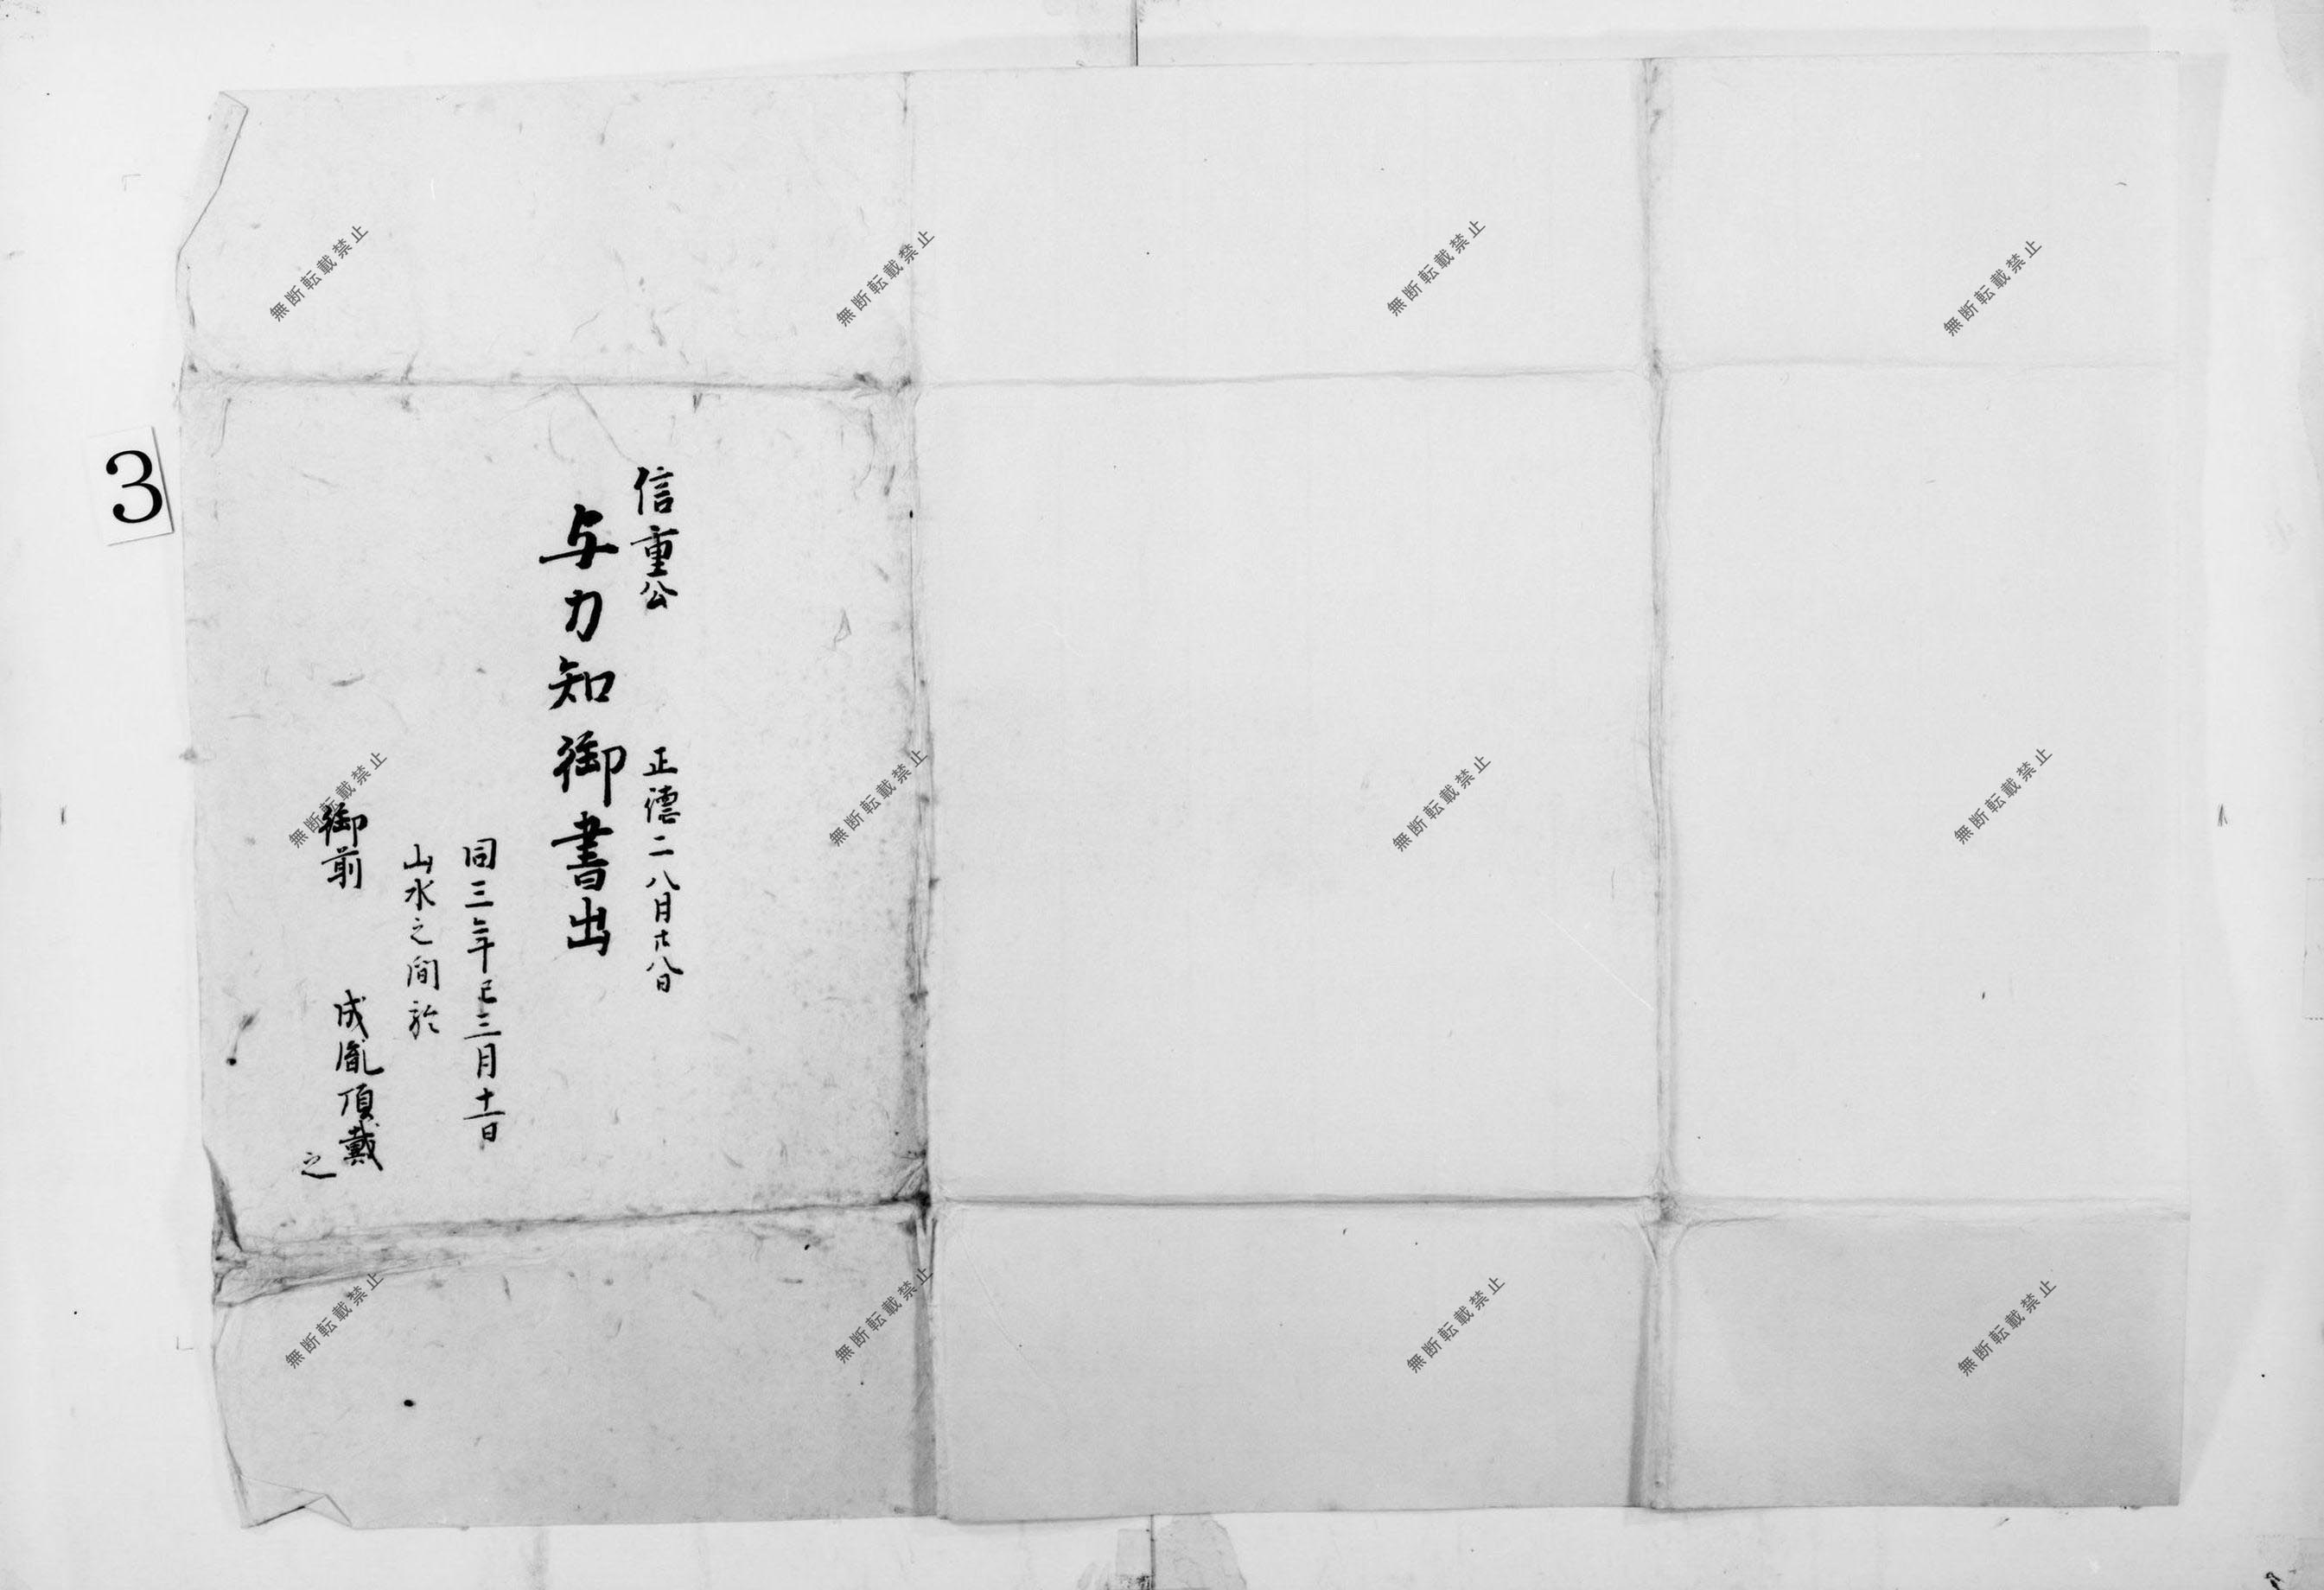 信重公　正徳二八月廿八日
与力知御書出
同三年巳三月十一日
山水之間於
御前　成胤頂戴
之
3
無断転載禁止
無断転載禁止
無断転載禁止
無断転載禁止
無断転載禁止
無断転載禁止
無断転載禁止
無断転載禁止
無断転載禁止
無断転載禁止
無断転載禁止
無断転載禁止